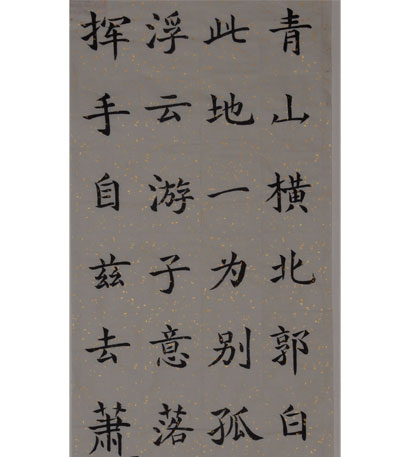 青山横北郭白
此地一为别孤
浮云游子意落
挥手自兹去萧